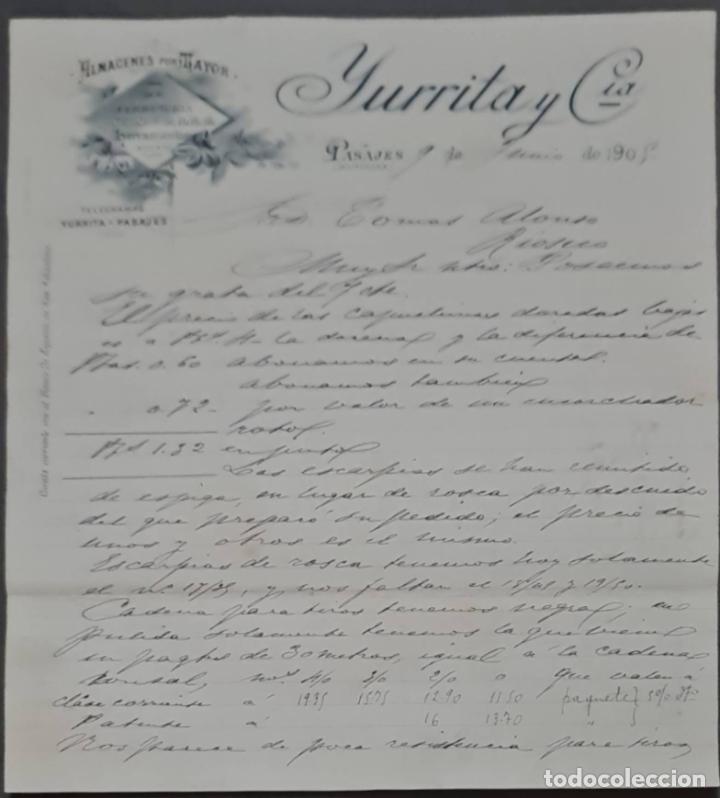 ALMACENES POR MAYOR
DE
FERRETERIA
Herramientas
TELEGRAMAS
YURRITA - PASAJES
Yurrita y Cia
PASAJES 9 de Junio de 1905
Sr. D. Tomas Alonso
Rioseco
Muy Sr. ntro: Poseemos
su grata del 7 cte.
El precio de las doradas bajas
es a Pts 4- la docena y la diferencia de
Ptas. 0.60 abonamos en su cuenta.
abonamos tambien
" 0,72- por valor de un encorchador
roto.
Pts 1.32 en junto
Las escarpias se han remitido
de espiga, en lugar de rosca por descuido
del que preparó su pedido; el precio de
unos y otros es el mismo.
Escarpias de rosca tenemos hoy solamente
el nº 17/35, y nos faltan el y 19/50.
Cadena para tiros tenemos negra; en
pulida solamente tenemos la que viene
en paqtes de 30 metros, igual á la cadena
nos 4/0 3/0 2/0 0 que valen á
clase corriente á 19.35 15.75 12.90 11.50 paquete } 5%
Patente á 16 13.70 " }
Nos parece de poca resistencia para tiros
todocoleccion
todocoleccion.net